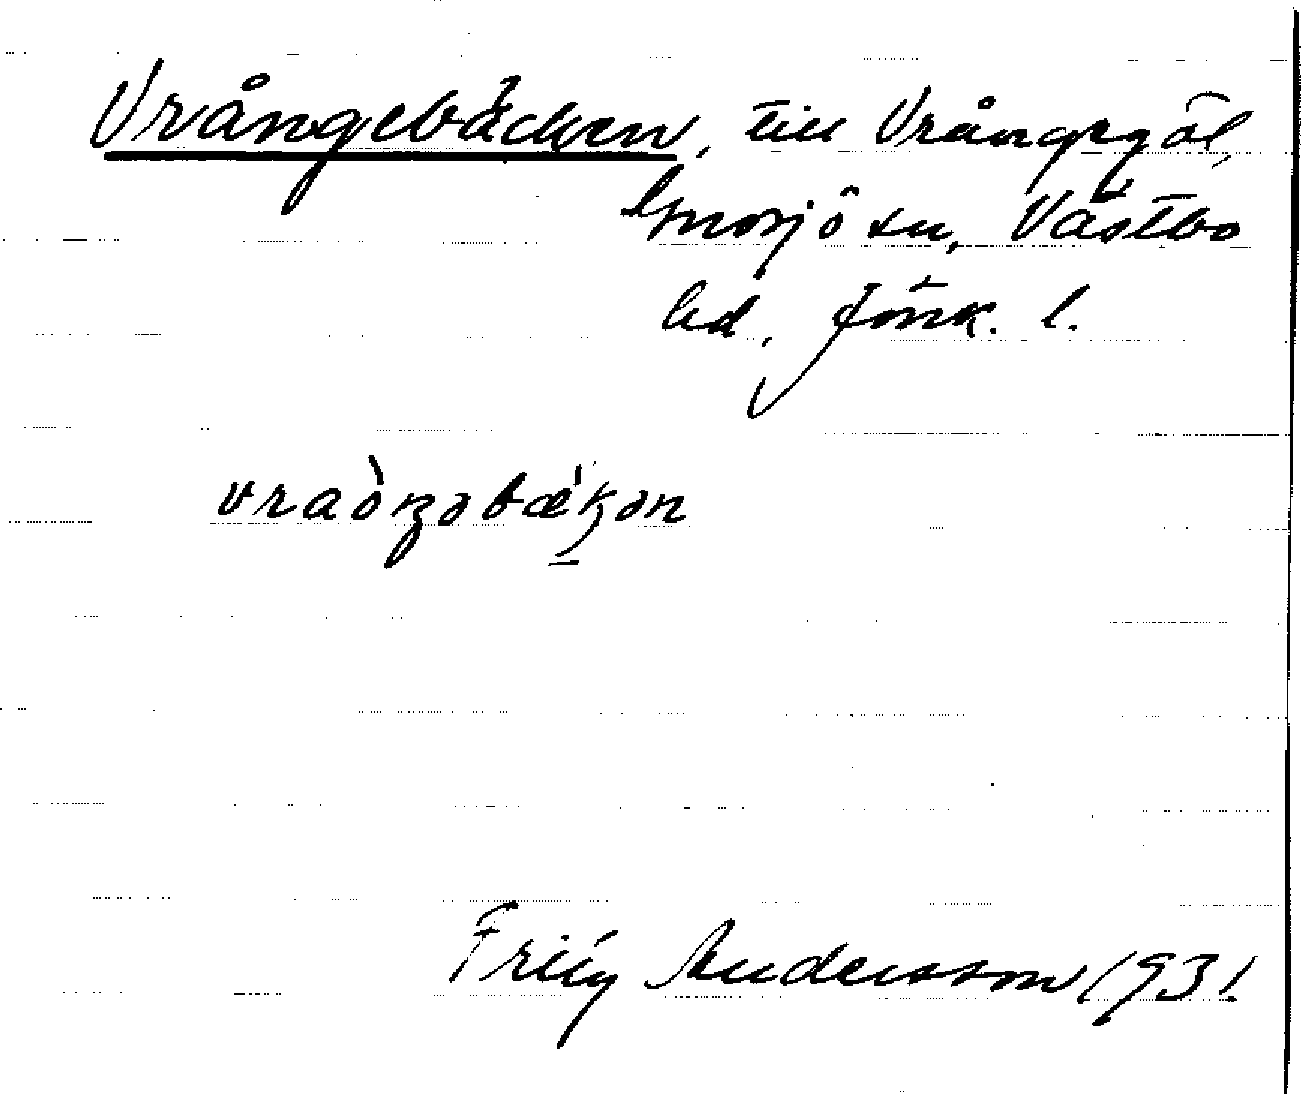 Vrångebäcken, till Vrångegöl,
Gnosjö sn, Västbo
hd, Jönk. l.
vraòŋəbæ̀kən
Fritz Andersson 1931